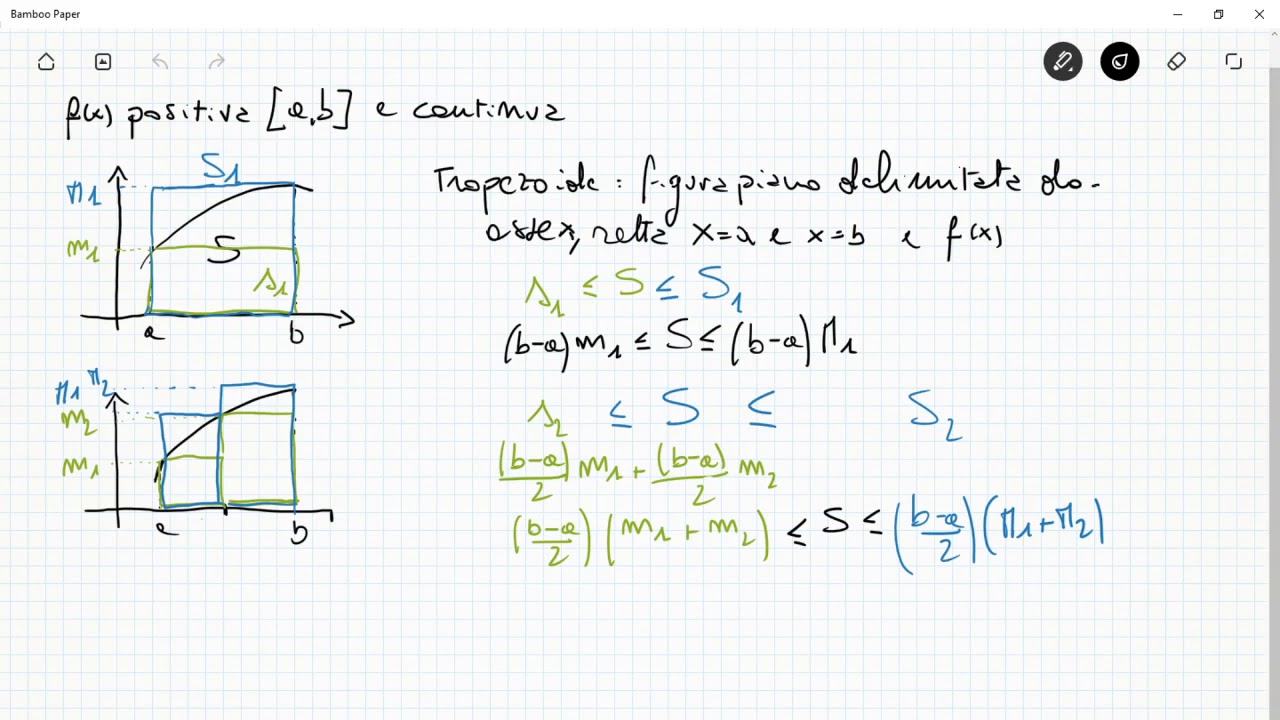 Bamboo Paper
f(x) positiva [a,b] e continua
S1
M1
m1
S
s1
a b
Trapezoide : figura piana delimitata da
asse x, retta x=a e x=b e f(x)
s1 ≤ S ≤ S1
(b-a) m1 ≤ S ≤ (b-a) M1
M1 M2
m2
m1
a b
s2 ≤ S ≤ S2
(b-a)/2 m1 + (b-a)/2 m2
((b-a)/2) (m1 + m2) ≤ S ≤ ((b-a)/2) (M1+M2)